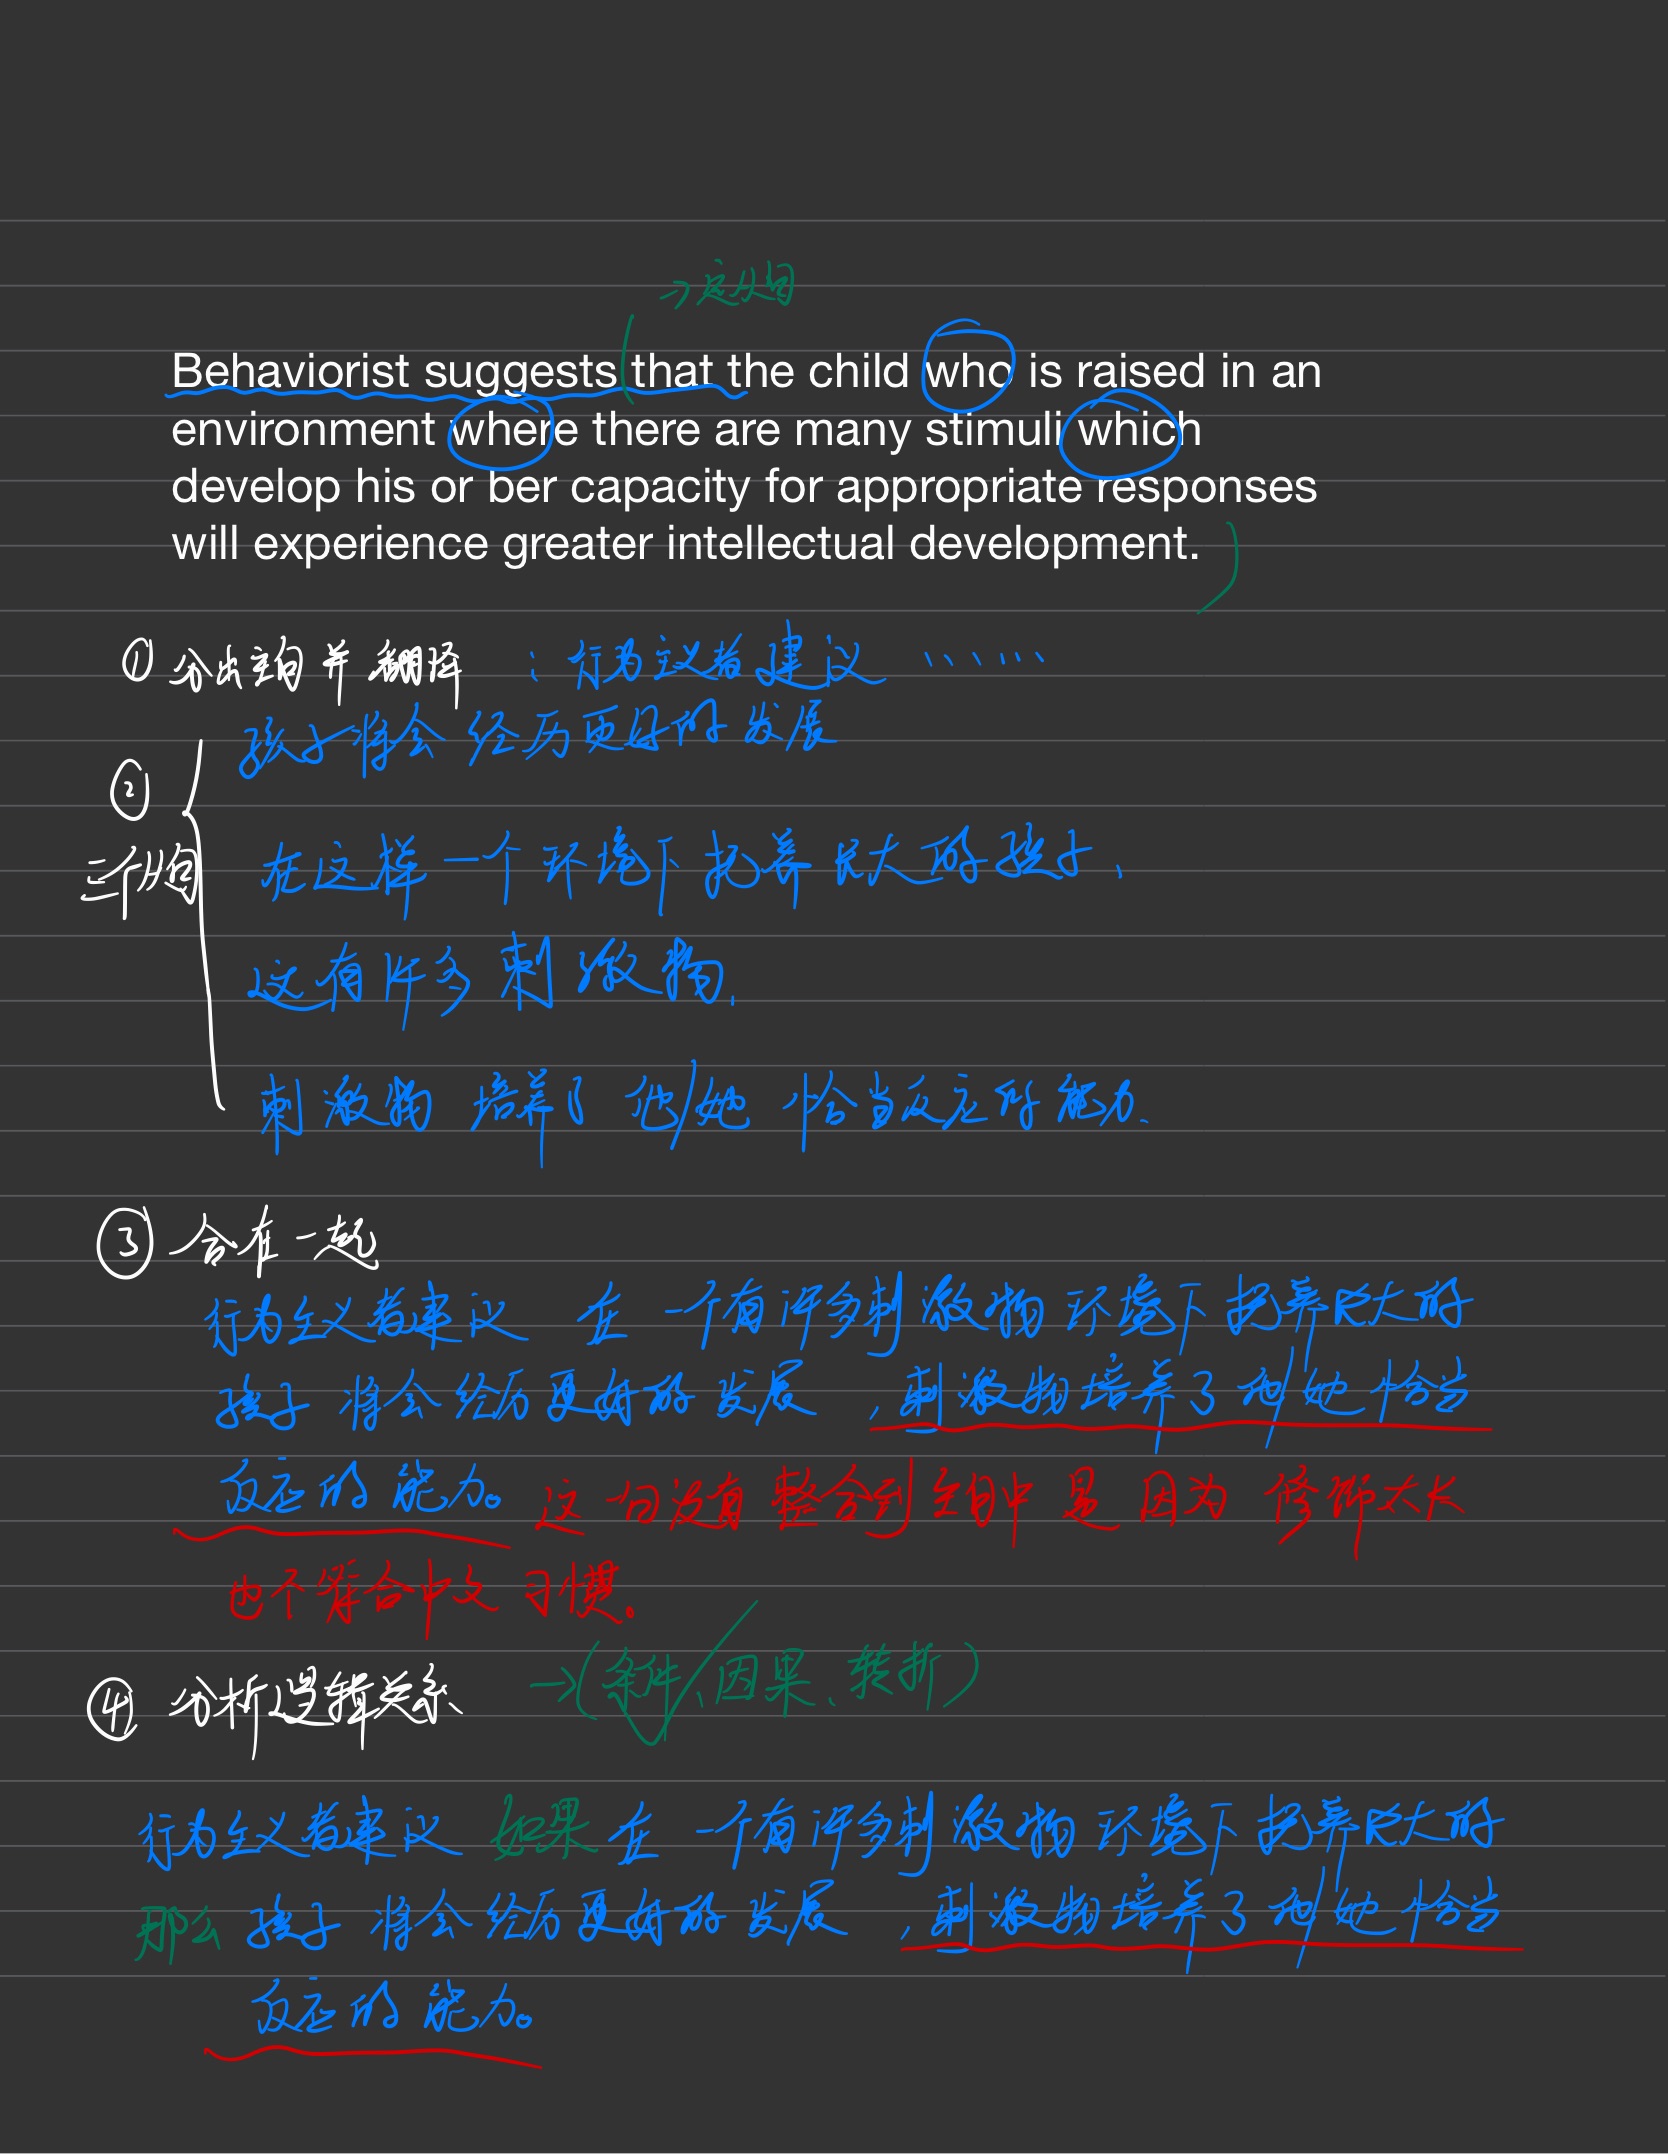 →宾从句
Behaviorist suggests that the child who is raised in an
environment where there are many stimuli which
develop his or ber capacity for appropriate responses
will experience greater intellectual development.
① 分出主句并翻译：行为主义者建议 ……
孩子将会经历更好的发展
②
三个从句
在这样一个环境下抚养长大的孩子、
这有许多刺激物.
刺激物培养了他/她 恰当反应的能力.
③ 合在一起
行为主义者建议 在一个有许多刺激物环境下抚养长大的
孩子将会经历更好的发展，刺激物培养了他/她恰当
反应的能力。这一句没有整合到主句中是因为修饰太长
也不符合中文习惯。
④ 分析逻辑关系 →(条件、因果、转折)
行为主义者建议 如果在一个有许多刺激物环境下抚养长大的
那么孩子将会经历更好的发展，刺激物培养了他/她恰当
反应的能力。